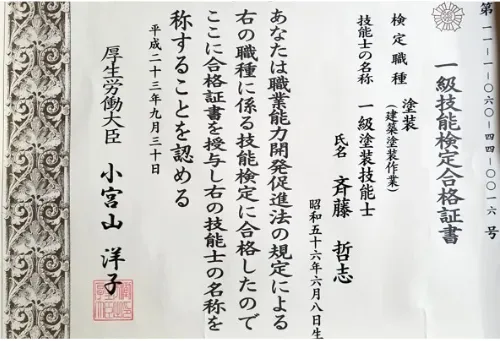 第一一-一-〇六〇-四四-〇〇一六号
一級技能検定合格証書
検定職種 塗装
(建築塗装作業)
技能士の名称 一級塗装技能士
氏名 斉藤 哲志
昭和五十六年六月八日生
あなたは職業能力開発促進法の規定による
右の職種に係る技能検定に合格したので
ここに合格証書を授与し右の技能士の名称を
称することを認める
平成二十三年九月三十日
厚生労働大臣 小宮山 洋子